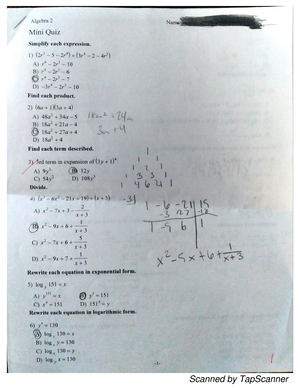 Algebra 2
Name
Mini Quiz
Simplify each expression.
1) (2r³ − 5 − 2r⁴) + (3r⁴ − 2 − 4r³)
A) r⁴ − 2r³ − 10
B) r⁴ − 2r³ − 6
C) r⁴ − 2r³ − 7
D) −3r⁴ − 2r³ − 10
Find each product.
2) (6a + 1)(3a + 4)
A) 48a² + 34a − 5
B) 18a² + 21a − 4
C) 18a² + 27a + 4
D) 18a² + 4
18a² + 24a
3a + 4
Find each term described.
3) 3rd term in expansion of (3y + 1)⁴
A) 9y²
B) 32y
C) 54y²
D) 108y³
1
1 1
1 2 1
1 3 3 1
1 4 6 4 1
Divide.
4) (x³ − 6x² − 21x + 19) ÷ (x + 3)
A) x² − 7x + 3 − 2/(x + 3)
B) x² − 9x + 6 + 1/(x + 3)
C) x² − 7x + 6 + 5/(x + 3)
D) x² − 9x + 7 + 1/(x + 3)
−3 1 −6 −21 19
−3 27 −18
1 −9 6 1
x² − 9x + 6 + 1/(x+3)
Rewrite each equation in exponential form.
5) log y 151 = x
A) y¹⁵¹ = x
B) yˣ = 151
C) xʸ = 151
D) 151ˣ = y
Rewrite each equation in logarithmic form.
6) yˣ = 130
A) log y 130 = x
B) log x y = 130
C) log x 130 = y
D) log y x = 130
-1-
1
Scanned by TapScanner